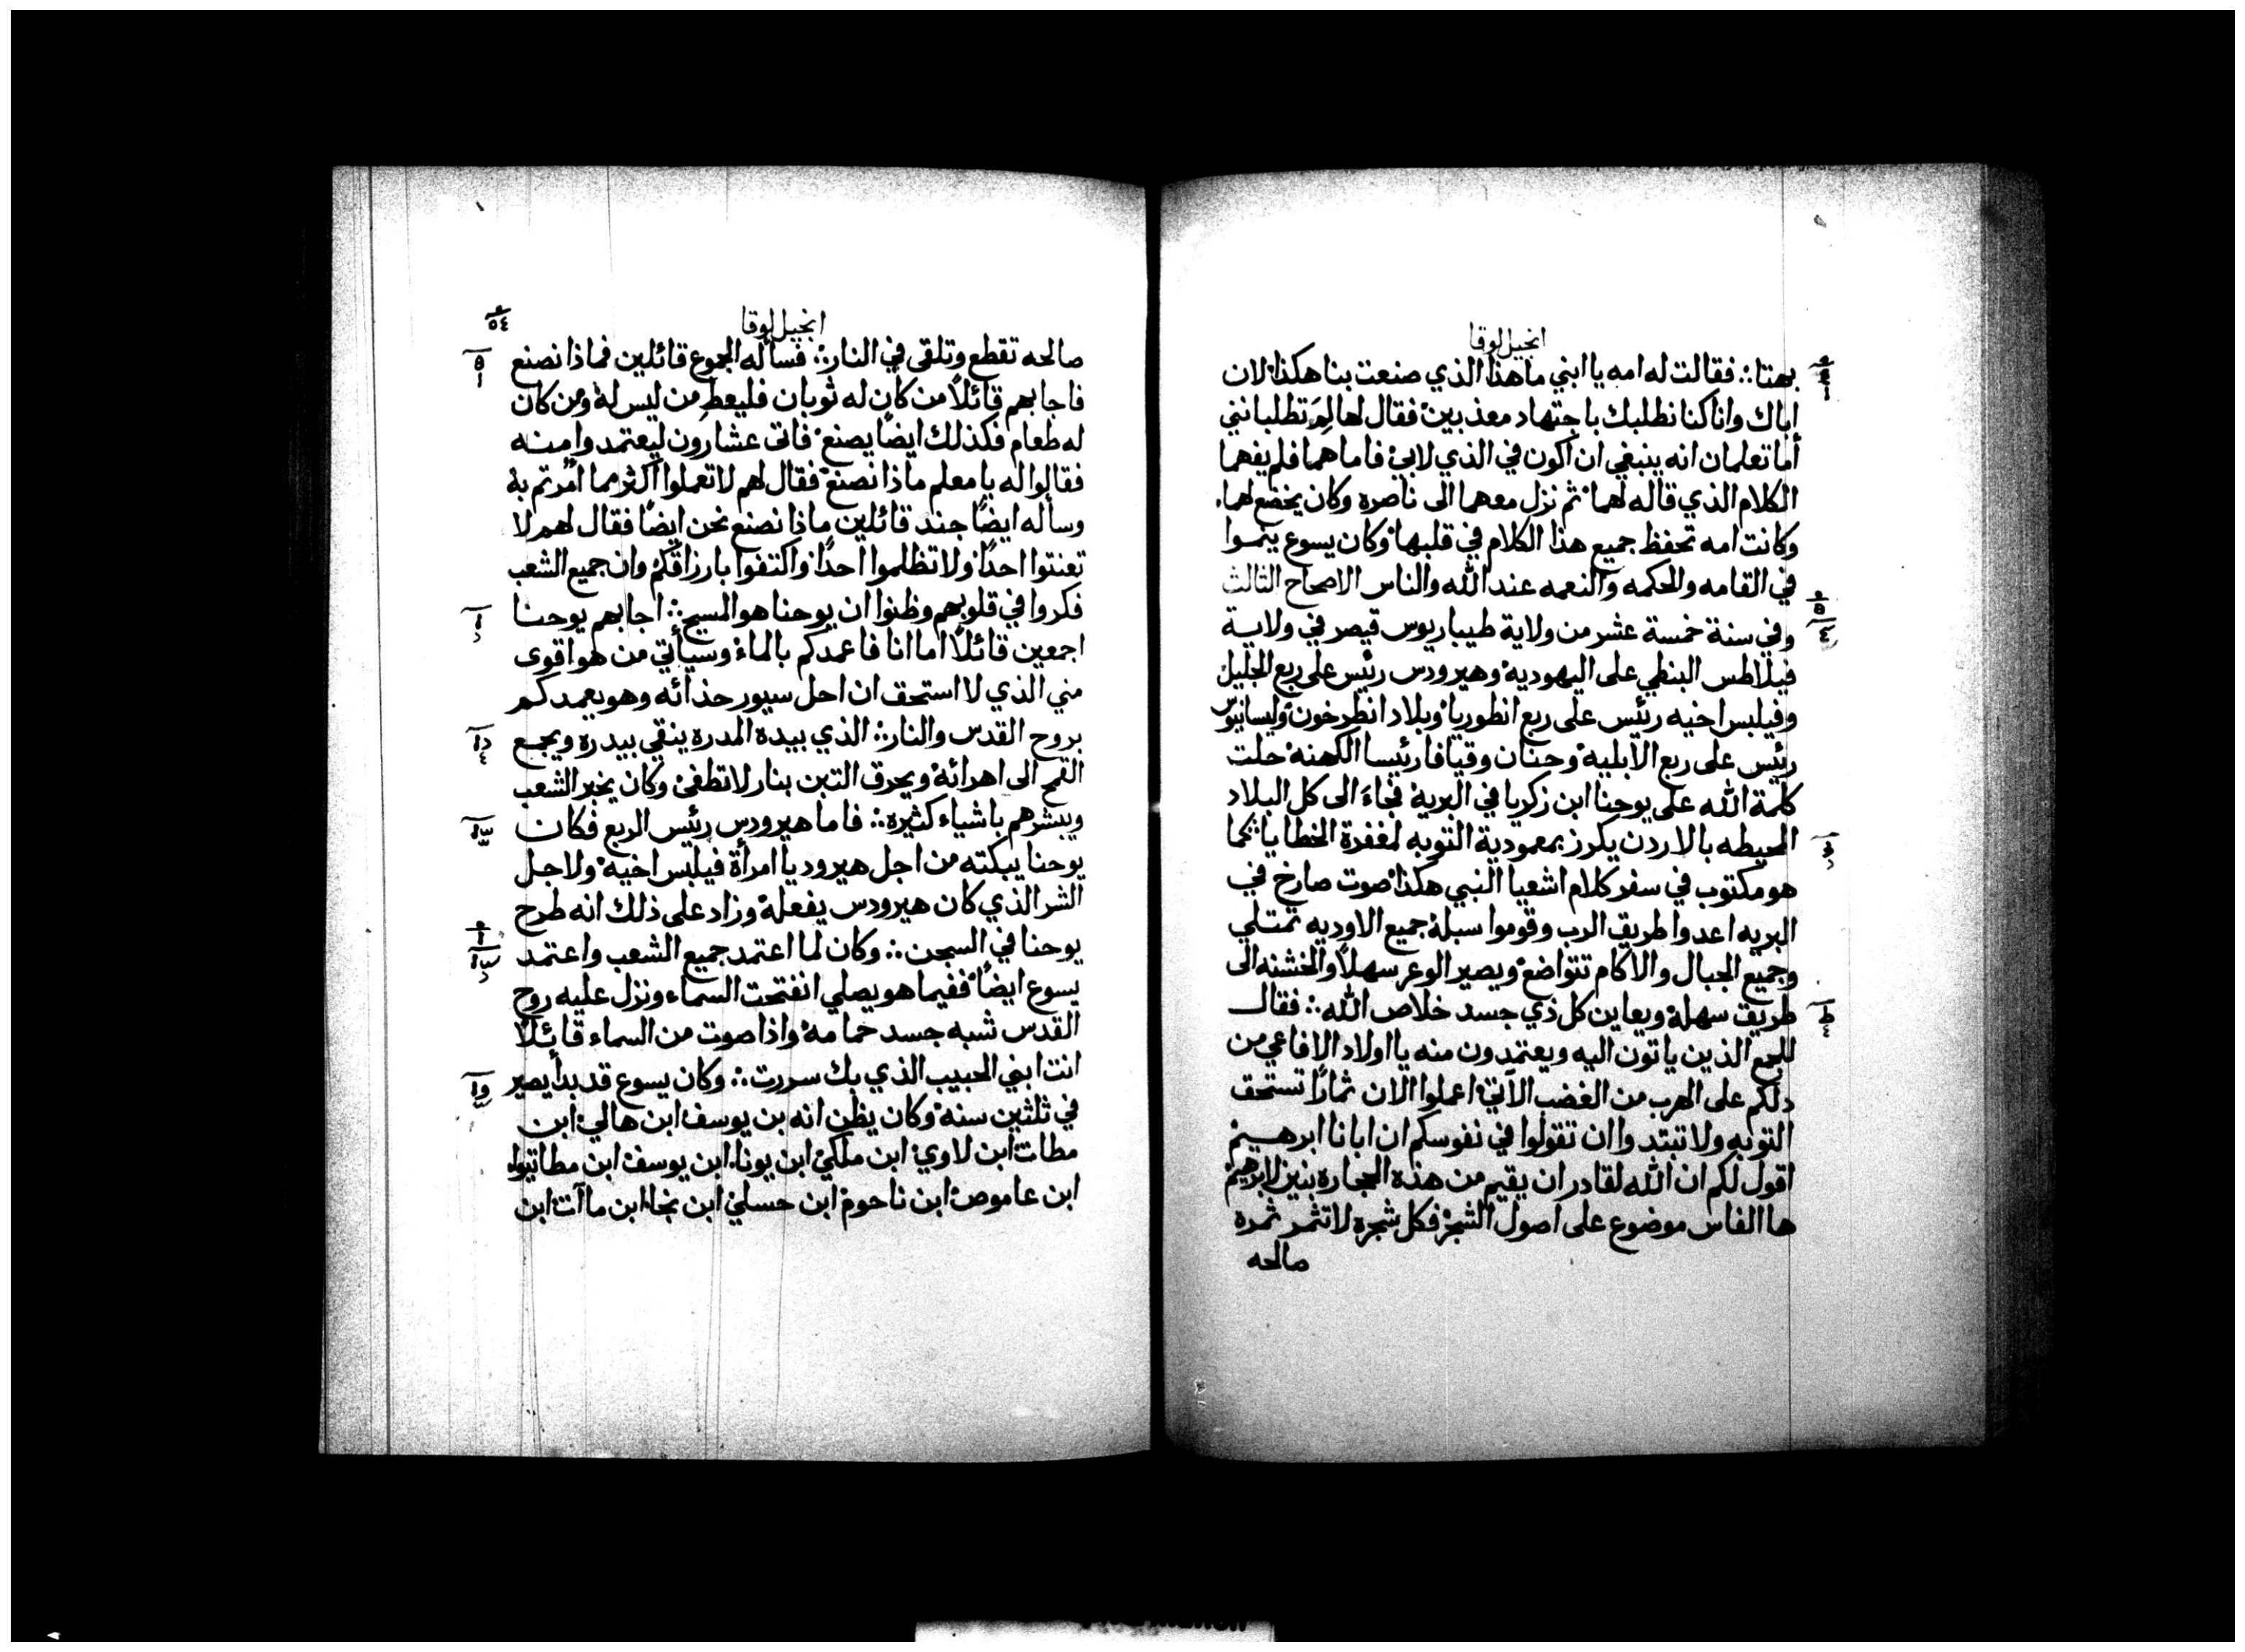 انجيل لوقا
بهتا ∴ فقالت له امه يا ابني ماهذا الذي صنعت بنا هكذا لان
اباك وانا كنا نطلبك باجتهاد معذبين فقال لها لِمَ تطلبانني
أما تعلمان انه ينبغي ان اكون في الذي لابي فاما هما فلم يفهما
الكلام الذي قاله لهما ثم نزل معهما الى ناصره وكان يخضع لهما
وكانت امه تحفظ جميع هذا الكلام في قلبها وكان يسوع ينموا
في القامه والحكمه والنعمه عند الله والناس الاصحاح الثالث
وفي سنة خمسة عشر من ولاية طيباريوس قيصر في ولاية
فيلاطس البنطي على اليهودية وهيرودس رئيس على ربع الجليل
وفيلبس اخيه رئيس على ربع انطوريا وبلاد انطرخون وليسانيوس
رئيس على ربع الابلية وحنان وقيافا رئيسا الكهنه حلت
كلمة الله على يوحنا ابن زكريا في البرية فجاءَ الى كل البلاد
المحيطه بالاردن يكرز بمعمودية التوبه لمغفرة الخطايا كما
هو مكتوب في سفر كلام اشعيا النبي هكذا صوت صارخ في
البريه اعدوا طريق الرب وقوموا سبله جميع الاوديه تمتلي
وجميع الجبال والاكام تتواضع ويصير الوعر سهلاً والخشنه الى
طريق سهلة ويعاين كل ذي جسد خلاص الله ∴ فقال
للجمع الذين ياتون اليه ويعتمدون منه يا اولاد الافاعي من
دلكم على الهرب من الغضب الآتي اعملوا الان ثمارًا تستحق
التوبه ولا تبتدوا ان تقولوا في نفوسكم ان ابانا ابرهيم
اقول لكم ان الله لقادر ان يقيم من هذه الحجاره بنين لابرهيم
ها الفاس موضوع على اصول الشجر فكل شجره لا تثمر ثمرة
صالحه
انجيل لوقا
٥٤
صالحه تقطع وتلقى في النار ∴ فسأله الجموع قائلين فماذا نصنع
فاجابهم قائلاً من كان له ثوبان فليعط من ليس له ومن كان
له طعام فكذلك ايضًا يصنع فاتى عشارون ليعتمدوا منه
فقالوا له يا معلم ماذا نصنع فقال لهم لا تعملوا اكثر مما اُمرتم به
وسأله ايضًا جند قائلين ماذا نصنع نحن ايضًا فقال لهم لا
تعنتوا احدًا ولا تظلموا احدًا واكتفوا بارزاقكم وان جميع الشعب
فكروا في قلوبهم وظنوا ان يوحنا هو المسيح ∴ اجابهم يوحنا
اجمعين قائلاً اما انا فاعمدكم بالماء وسيأتي من هو اقوى
مني الذي لا استحق ان احل سيور حذائه وهو يعمدكم
بروح القدس والنار ∴ الذي بيده المدرة ينقي بيدره ويجمع
القمح الى اهرائه ويحرق التبن بنار لا تطفئ وكان يخبر الشعب
ويبشرهم باشياء كثيرة ∴ فاما هيرودس رئيس الربع فكان
يوحنا يبكته من اجل هيروديا امرأة فيلبس اخيه ولاجل
الشر الذي كان هيرودس يفعله وزاد على ذلك انه طرح
يوحنا في السجن ∴ وكان لما اعتمد جميع الشعب واعتمد
يسوع ايضًا ففيما هو يصلي انفتحت السماء ونزل عليه روح
القدس شبه جسد حمامة واذا صوت من السماء قائلاً
انت ابني الحبيب الذي بك سررت ∴ وكان يسوع قد بدأ يصير
في ثلثين سنه وكان يظن انه بن يوسف ابن هالي ابن
مطات ابن لاوي ابن ملكي ابن يونا ابن يوسف ابن مطاتيوا
ابن عاموص ابن ناحوم ابن حسلي ابن نجا ابن ماآت ابن